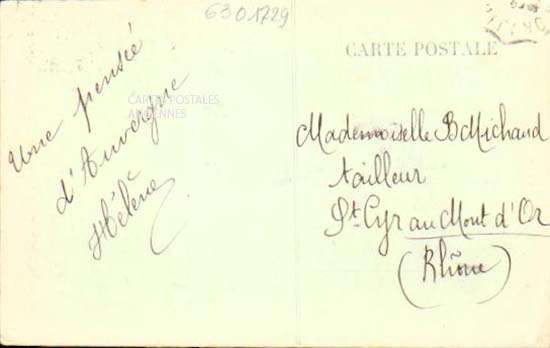 6301729
CARTE POSTALE
CARTES POSTALES
ANCIENNES
Une pensée
d'Auvergne
Hélène
Mademoiselle B Michaud
tailleur
St. Cyr au Mont d'Or
(Rhône)